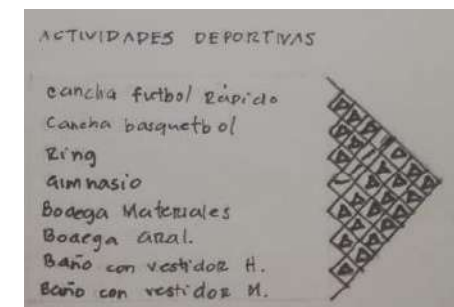 ACTIVIDADES DEPORTIVAS
cancha futbol Rápido
Cancha basquetbol
Ring
Gimnasio
Bodega Materiales
Bodega Gral.
Baño con vestidor H.
Baño con vestidor M.